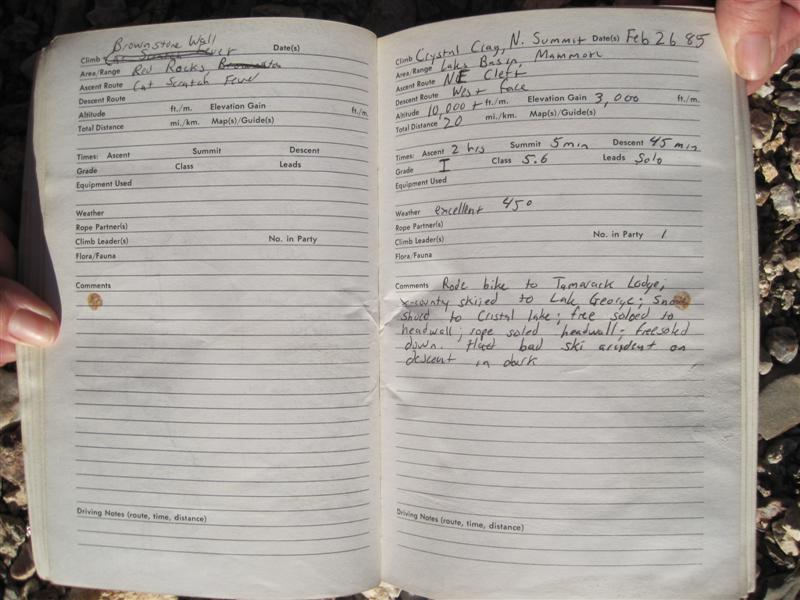 Brownstone Wall
Climb Cat Scratch Fever Date(s)
Area/Range Red Rocks, Brownstone
Ascent Route Cat Scratch Fever
Descent Route
Altitude ft./m. Elevation Gain ft./m.
Total Distance mi./km. Map(s)/Guide(s)
Times: Ascent Summit Descent
Grade Class Leads
Equipment Used
Weather
Rope Partner(s)
Climb Leader(s) No. in Party
Flora/Fauna
Comments
Driving Notes (route, time, distance)
Climb Crystal Crag, N. Summit Date(s) Feb 26 85
Area/Range Laks Basin, Mammoth
Ascent Route NE Cleft
Descent Route West face
Altitude 10,000+ ft./m. Elevation Gain 3,000 ft./m.
Total Distance 20 mi./km. Map(s)/Guide(s)
Times: Ascent 2 hrs Summit 5 min Descent 45 min
Grade I Class 5.6 Leads Solo
Equipment Used
Weather excellent 45°
Rope Partner(s)
Climb Leader(s) No. in Party 1
Flora/Fauna
Comments Rode bike to Tamarack Lodge;
x-county skiied to Lake George; snow
shoed to Cristal lake; free soloed to
headwall; rope soled headwall; freesoled
down. Had bad ski accident on
descent in dark
Driving Notes (route, time, distance)